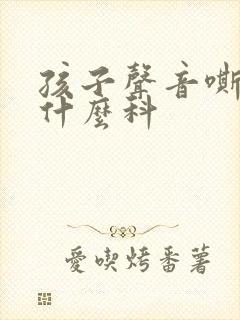 孩子聲音嘶
什麼科
愛喫烤番薯